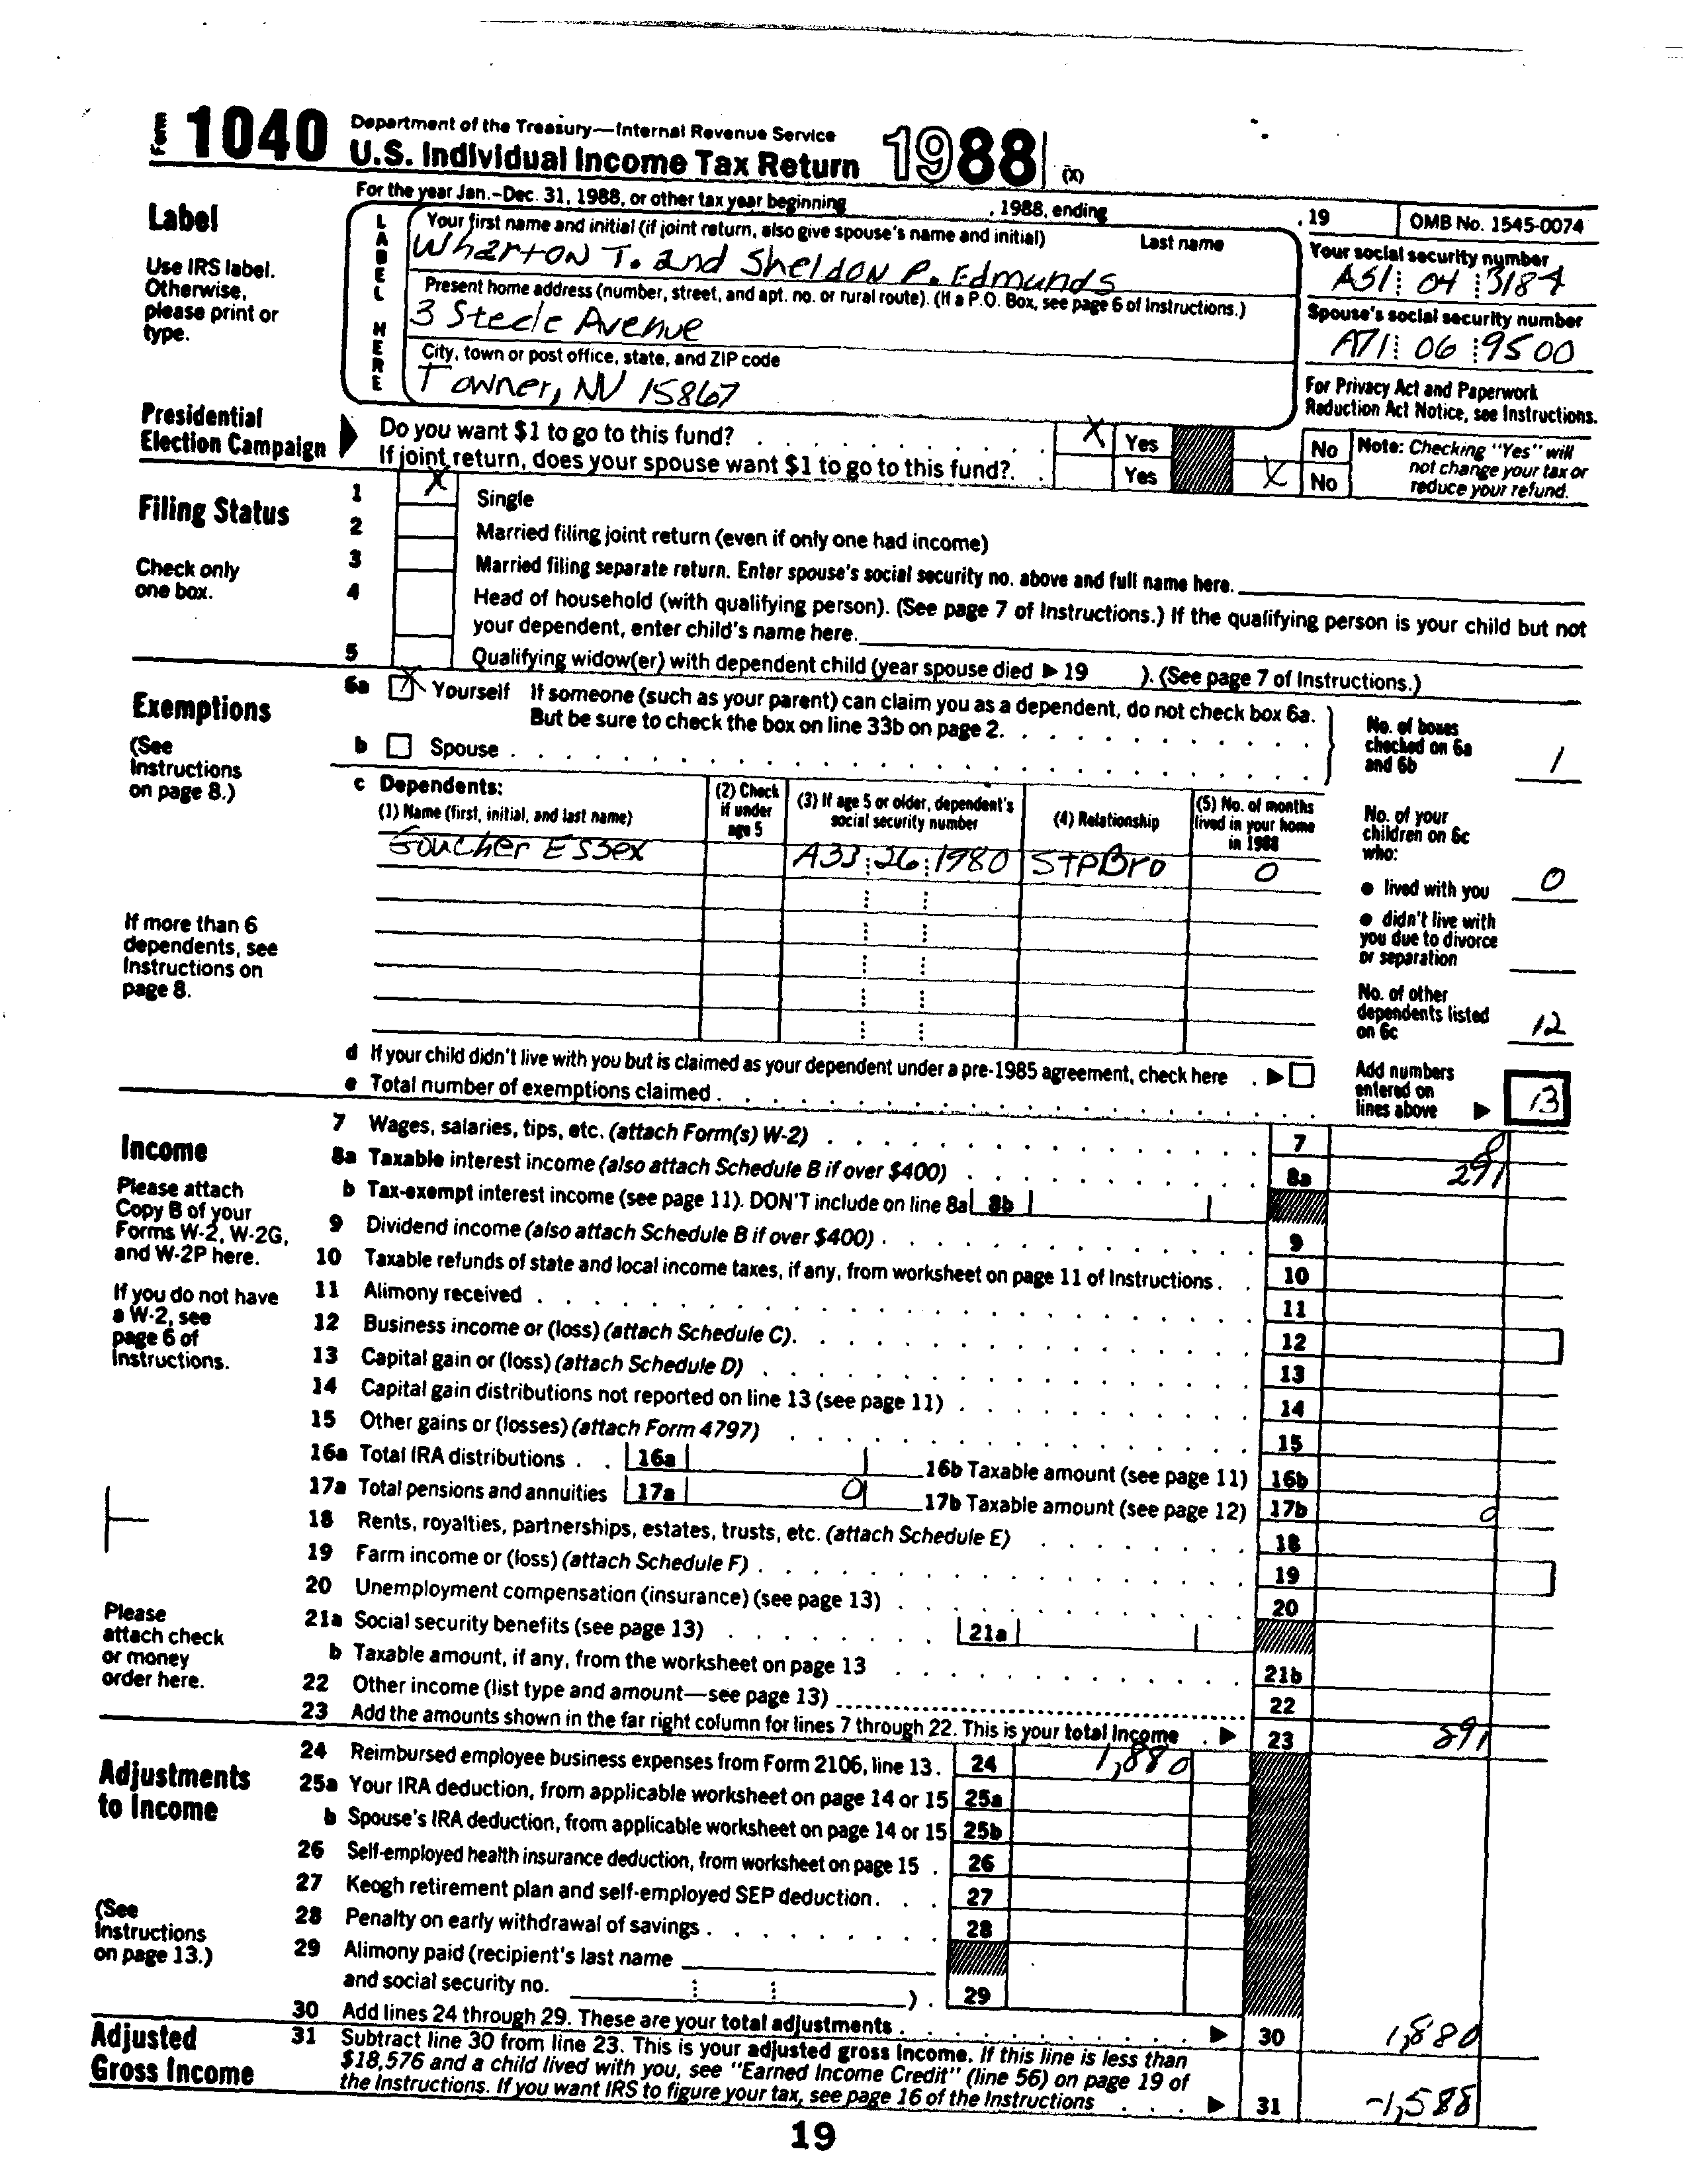 Form 1040 Department of the Treasury—Internal Revenue Service
U.S. Individual Income Tax Return 1988 (X)
For the year Jan.–Dec. 31, 1988, or other tax year beginning , 1988, ending , 19 OMB No. 1545-0074
Label
Use IRS label. Otherwise, please print or type.
LABEL HERE
Your first name and initial (if joint return, also give spouse's name and initial) Last name
Wharton T. and Sheldon P. Edmunds
Your social security number
A51 04 3184
Present home address (number, street, and apt. no. or rural route). (If a P.O. Box, see page 6 of Instructions.)
3 Steele Avenue
Spouse's social security number
A71 06 9500
City, town or post office, state, and ZIP code
Towner, NV 15867
For Privacy Act and Paperwork Reduction Act Notice, see Instructions.
Presidential Election Campaign
Do you want $1 to go to this fund? X Yes No
If joint return, does your spouse want $1 to go to this fund? Yes X No
Note: Checking "Yes" will not change your tax or reduce your refund.
Filing Status
Check only one box.
1 X Single
2 Married filing joint return (even if only one had income)
3 Married filing separate return. Enter spouse's social security no. above and full name here.
4 Head of household (with qualifying person). (See page 7 of Instructions.) If the qualifying person is your child but not
your dependent, enter child's name here.
5 Qualifying widow(er) with dependent child (year spouse died ▶ 19 ). (See page 7 of Instructions.)
Exemptions
(See Instructions on page 8.)
6a X Yourself If someone (such as your parent) can claim you as a dependent, do not check box 6a.
But be sure to check the box on line 33b on page 2.
b Spouse
No. of boxes checked on 6a and 6b 1
c Dependents:
(1) Name (first, initial, and last name) (2) Check if under age 5 (3) If age 5 or older, dependent's social security number (4) Relationship (5) No. of months lived in your home in 1988
Goucher Essex A33 26 1980 STPBro 0
No. of your children on 6c who:
● lived with you 0
● didn't live with you due to divorce or separation
No. of other dependents listed on 6c 12
If more than 6 dependents, see Instructions on page 8.
d If your child didn't live with you but is claimed as your dependent under a pre-1985 agreement, check here ▶
e Total number of exemptions claimed
Add numbers entered on lines above ▶ 13
Income
Please attach Copy B of your Forms W-2, W-2G, and W-2P here.
If you do not have a W-2, see page 6 of Instructions.
Please attach check or money order here.
7 Wages, salaries, tips, etc. (attach Form(s) W-2) 7 0
8a Taxable interest income (also attach Schedule B if over $400) 8a 291
b Tax-exempt interest income (see page 11). DON'T include on line 8a 8b
9 Dividend income (also attach Schedule B if over $400) 9
10 Taxable refunds of state and local income taxes, if any, from worksheet on page 11 of Instructions 10
11 Alimony received 11
12 Business income or (loss) (attach Schedule C) 12
13 Capital gain or (loss) (attach Schedule D) 13
14 Capital gain distributions not reported on line 13 (see page 11) 14
15 Other gains or (losses) (attach Form 4797) 15
16a Total IRA distributions 16a 16b Taxable amount (see page 11) 16b
17a Total pensions and annuities 17a 0 17b Taxable amount (see page 12) 17b 0
18 Rents, royalties, partnerships, estates, trusts, etc. (attach Schedule E) 18
19 Farm income or (loss) (attach Schedule F) 19
20 Unemployment compensation (insurance) (see page 13) 20
21a Social security benefits (see page 13) 21a
b Taxable amount, if any, from the worksheet on page 13 21b
22 Other income (list type and amount—see page 13) 22
23 Add the amounts shown in the far right column for lines 7 through 22. This is your total income ▶ 23 291
Adjustments to Income
(See Instructions on page 13.)
24 Reimbursed employee business expenses from Form 2106, line 13 24 1,880
25a Your IRA deduction, from applicable worksheet on page 14 or 15 25a
b Spouse's IRA deduction, from applicable worksheet on page 14 or 15 25b
26 Self-employed health insurance deduction, from worksheet on page 15 26
27 Keogh retirement plan and self-employed SEP deduction 27
28 Penalty on early withdrawal of savings 28
29 Alimony paid (recipient's last name
and social security no. ) 29
30 Add lines 24 through 29. These are your total adjustments ▶ 30 1,880
Adjusted Gross Income
31 Subtract line 30 from line 23. This is your adjusted gross income. If this line is less than
$18,576 and a child lived with you, see "Earned Income Credit" (line 56) on page 19 of
the Instructions. If you want IRS to figure your tax, see page 16 of the Instructions ▶ 31 -1,588
19